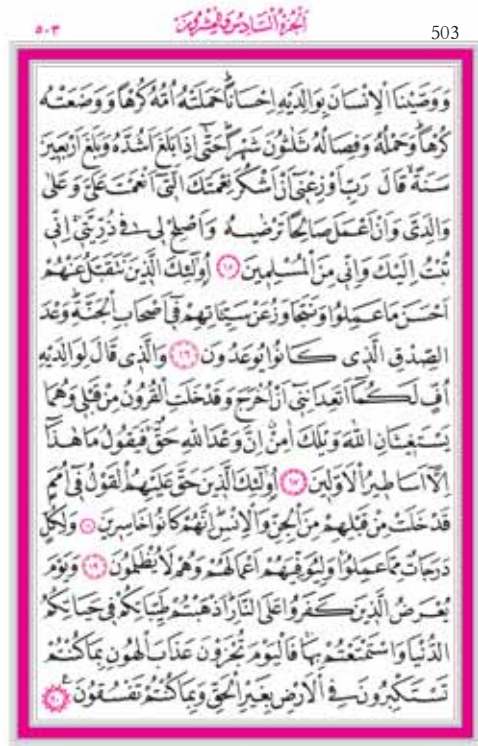 ٥٠٣ اَلْجُزْءُ السَّادِسُ وَالْعِشْرُونَ 503
وَوَصَّيْنَا الْاِنْسَانَ بِوَالِدَيْهِ اِحْسَاناًۜ حَمَلَتْهُ اُمُّهُ كُرْهاً وَوَضَعَتْهُ
كُرْهاًۜ وَحَمْلُهُ وَفِصَالُهُ ثَلٰثُونَ شَهْراًۜ حَتّٰٓى اِذَا بَلَغَ اَشُدَّهُ وَبَلَغَ اَرْبَعِينَ
سَنَةًۙ قَالَ رَبِّ اَوْزِعْنٓى اَنْ اَشْكُرَ نِعْمَتَكَ الَّتٓى اَنْعَمْتَ عَلَىَّ وَعَلٰى
وَالِدَىَّ وَاَنْ اَعْمَلَ صَالِحاً تَرْضٰيهُ وَاَصْلِحْ لٖى فٖى ذُرِّيَّتٖىۚ اِنّٖى
تُبْتُ اِلَيْكَ وَاِنّٖى مِنَ الْمُسْلِمٖينَ ﴿١٥﴾ اُو۬لٰٓئِكَ الَّذٖينَ نَتَقَبَّلُ عَنْهُمْ
اَحْسَنَ مَا عَمِلُوا وَنَتَجَاوَزُ عَنْ سَيِّـَٔاتِهِمْ فٖٓى اَصْحَابِ الْجَنَّةِۜ وَعْدَ
الصِّدْقِ الَّذٖى كَانُوا يُوعَدُونَ ﴿١٦﴾ وَالَّذٖى قَالَ لِوَالِدَيْهِ
اُفٍّ لَكُمَٓا اَتَعِدَانِنٖٓى اَنْ اُخْرَجَ وَقَدْ خَلَتِ الْقُرُونُ مِنْ قَبْلٖى وَهُمَا
يَسْتَغٖيثَانِ اللّٰهَ وَيْلَكَ اٰمِنْۗ اِنَّ وَعْدَ اللّٰهِ حَقٌّۚ فَيَقُولُ مَا هٰذَٓا
اِلَّٓا اَسَاطٖيرُ الْاَوَّلٖينَ ﴿١٧﴾ اُو۬لٰٓئِكَ الَّذٖينَ حَقَّ عَلَيْهِمُ الْقَوْلُ فٖٓى اُمَمٍ
قَدْ خَلَتْ مِنْ قَبْلِهِمْ مِنَ الْجِنِّ وَالْاِنْسِۜ اِنَّهُمْ كَانُوا خَاسِرٖينَ ﴿١٨﴾ وَلِكُلٍّ
دَرَجَاتٌ مِمَّا عَمِلُواۚ وَلِيُوَفِّيَهُمْ اَعْمَالَهُمْ وَهُمْ لَا يُظْلَمُونَ ﴿١٩﴾ وَيَوْمَ
يُعْرَضُ الَّذٖينَ كَفَرُوا عَلَى النَّارِۜ اَذْهَبْتُمْ طَيِّبَاتِكُمْ فٖى حَيَاتِكُمُ
الدُّنْيَا وَاسْتَمْتَعْتُمْ بِهَاۚ فَالْيَوْمَ تُجْزَوْنَ عَذَابَ الْهُونِ بِمَا كُنْتُمْ
تَسْتَكْبِرُونَ فِى الْاَرْضِ بِغَيْرِ الْحَقِّ وَبِمَا كُنْتُمْ تَفْسُقُونَ ﴿٢٠﴾